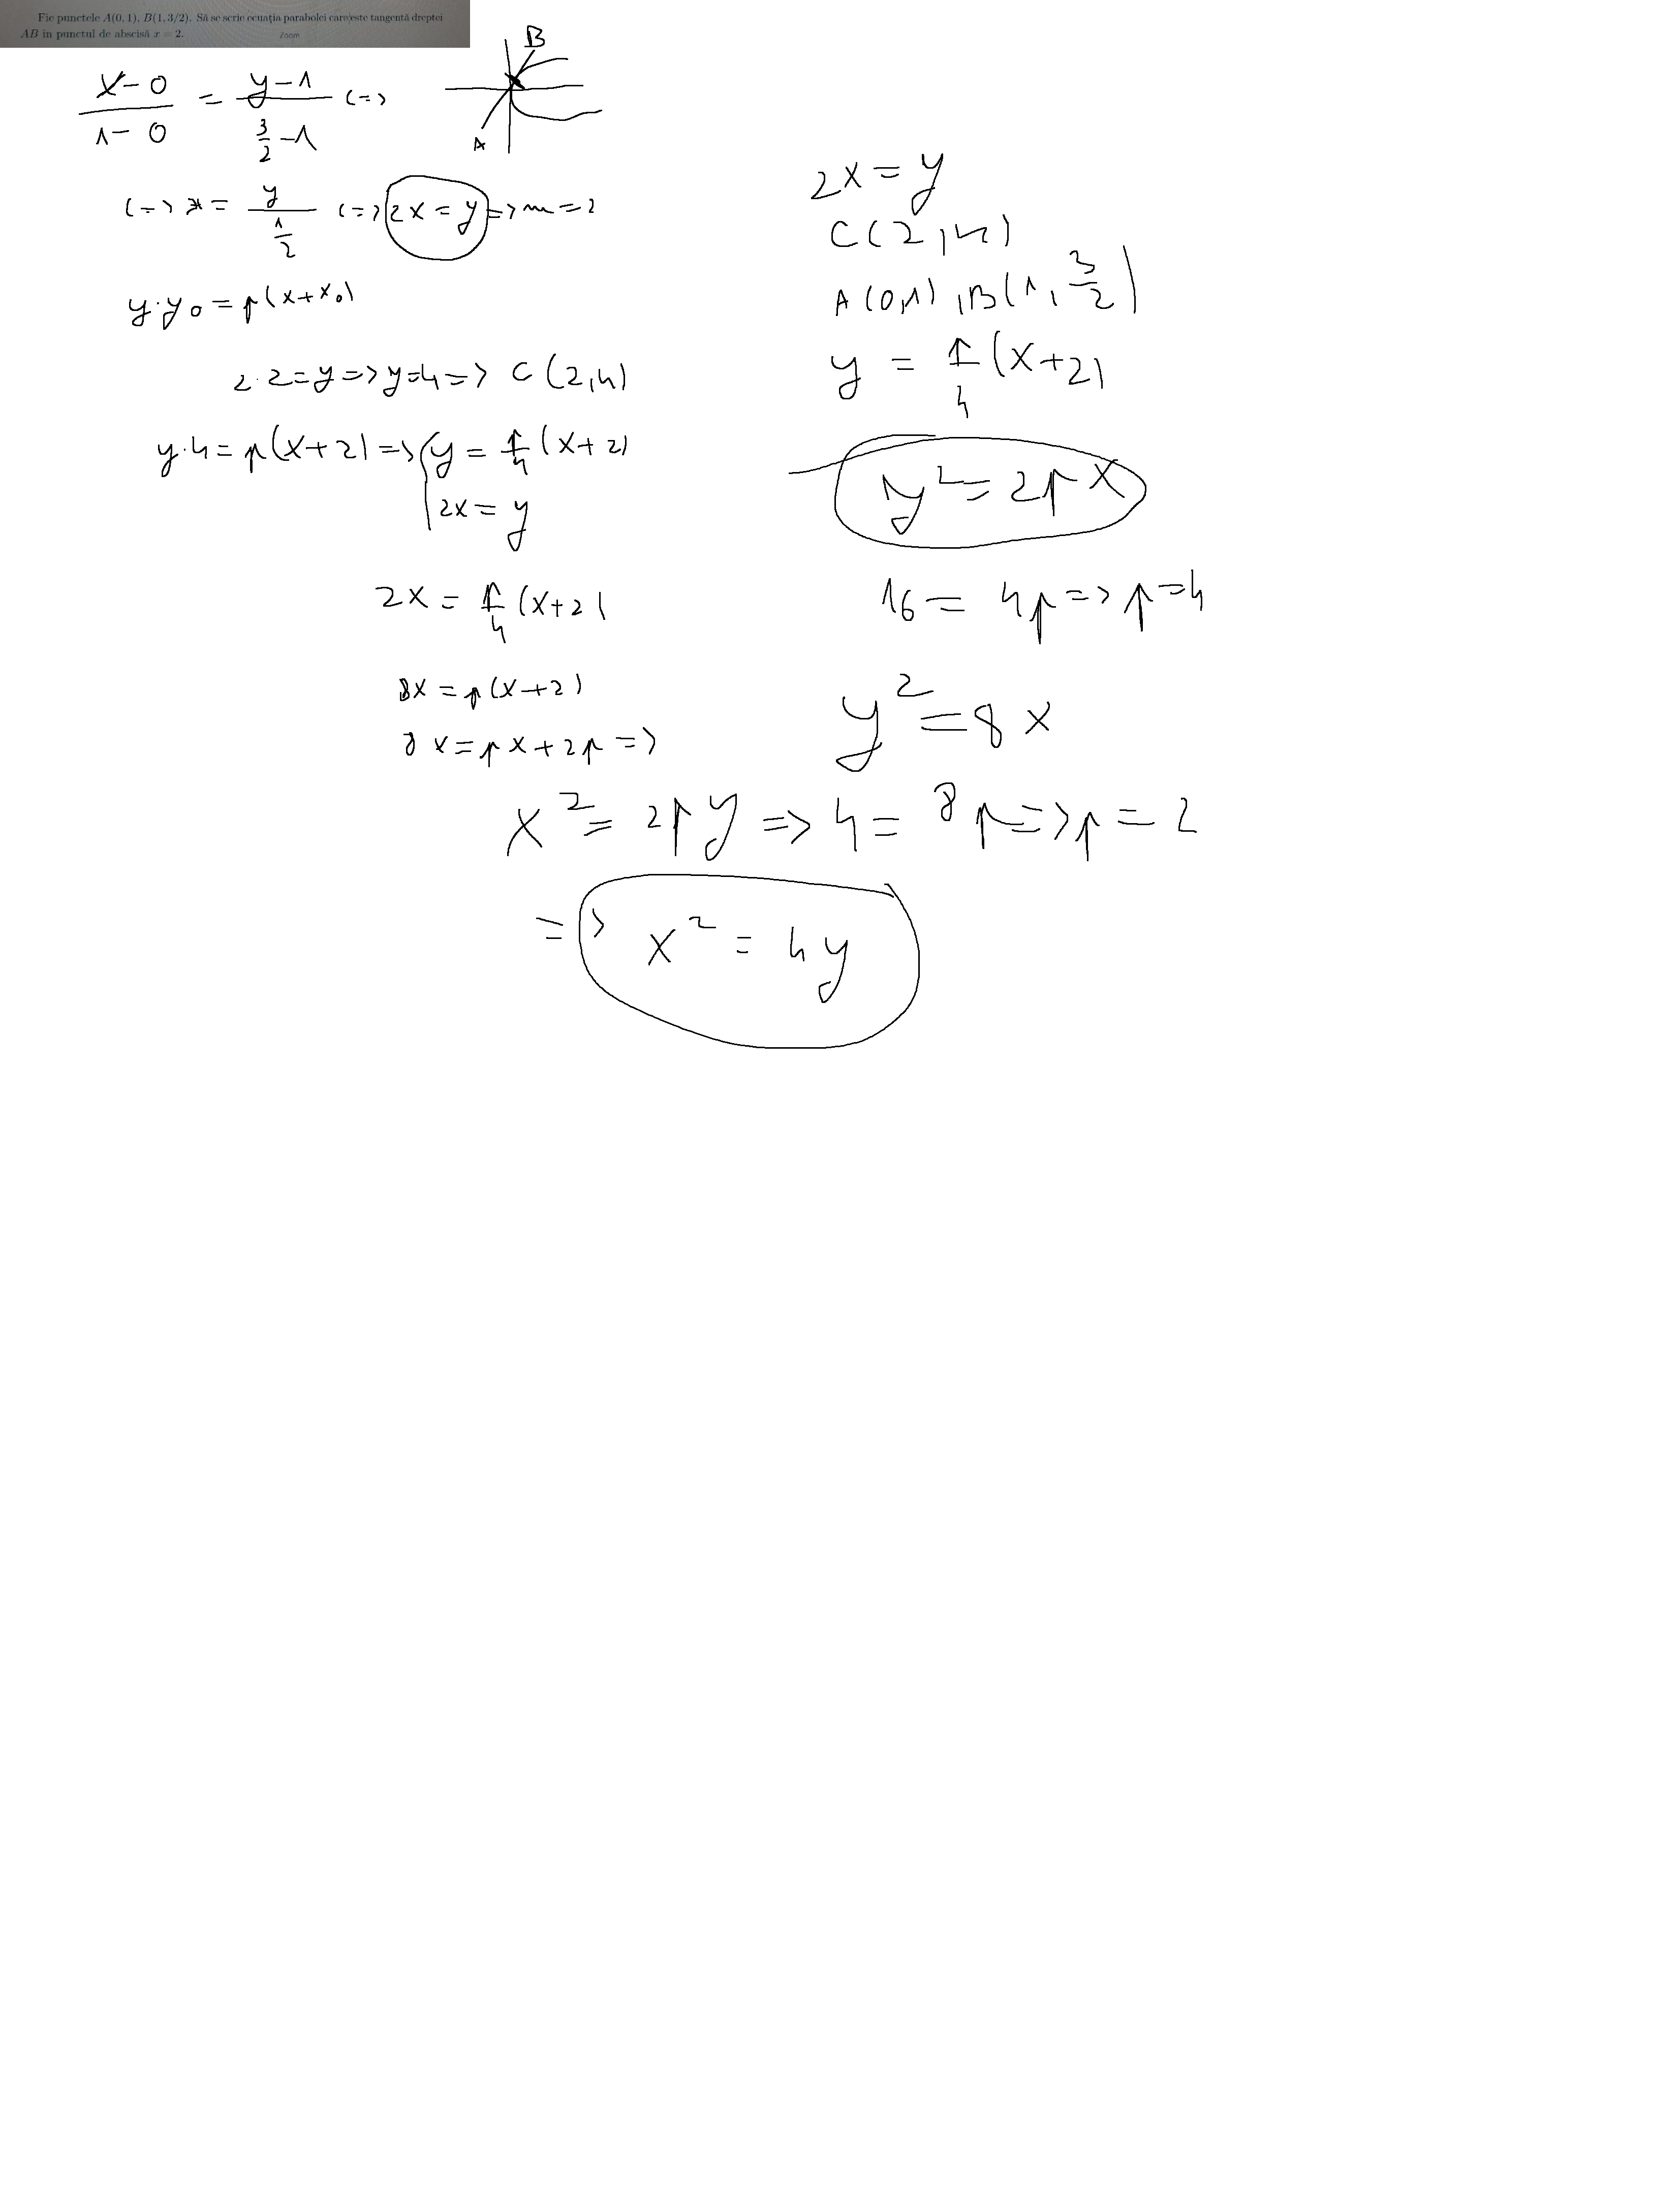 Fie punctele A(0, 1), B(1, 3/2). Să se scrie ecuația parabolei care este tangentă dreptei
AB în punctul de abscisă x = 2.
Zoom
B
A
(x-0)/(1-0) = (y-1)/(3/2-1) (=>
(=> x = y/(1/2) (=> 2x = y => m = 2
y·y₀ = p(x+x₀)
2·2 = y => y=4 => C(2,4)
y·4 = p(x+2) => { y = p/4 (x+2)
2x = y
2x = p/4 (x+2)
8x = p(x+2)
8x = px+2p =>
2x = y
C(2,4)
A(0,1), B(1, 3/2)
y = p/4 (x+2)
y² = 2px
16 = 4p => p=4
y² = 8x
x² = 2py => 4 = 8p => p = 2
=> x² = 4y